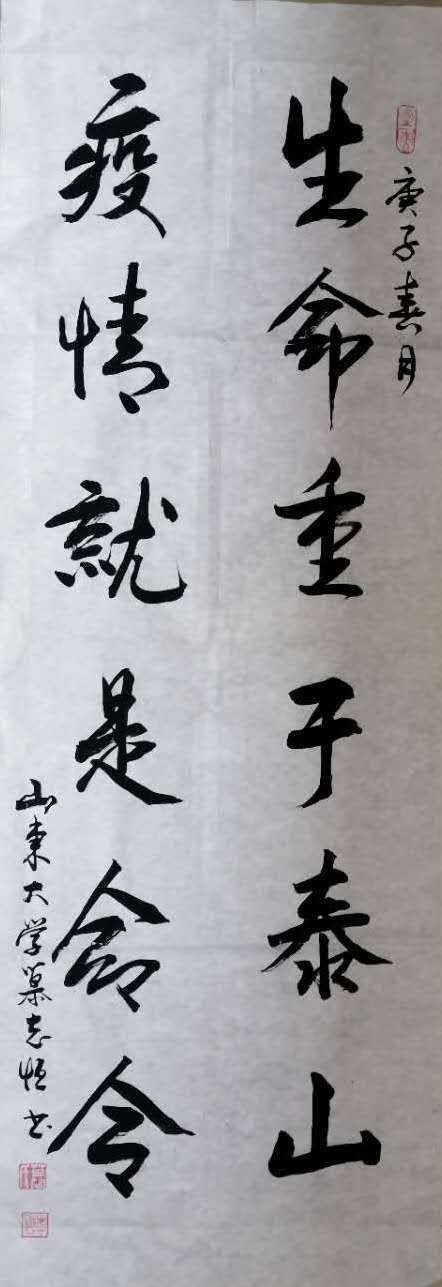 庚子春月
生命重于泰山
疫情就是命令
山东大学慕志恒书